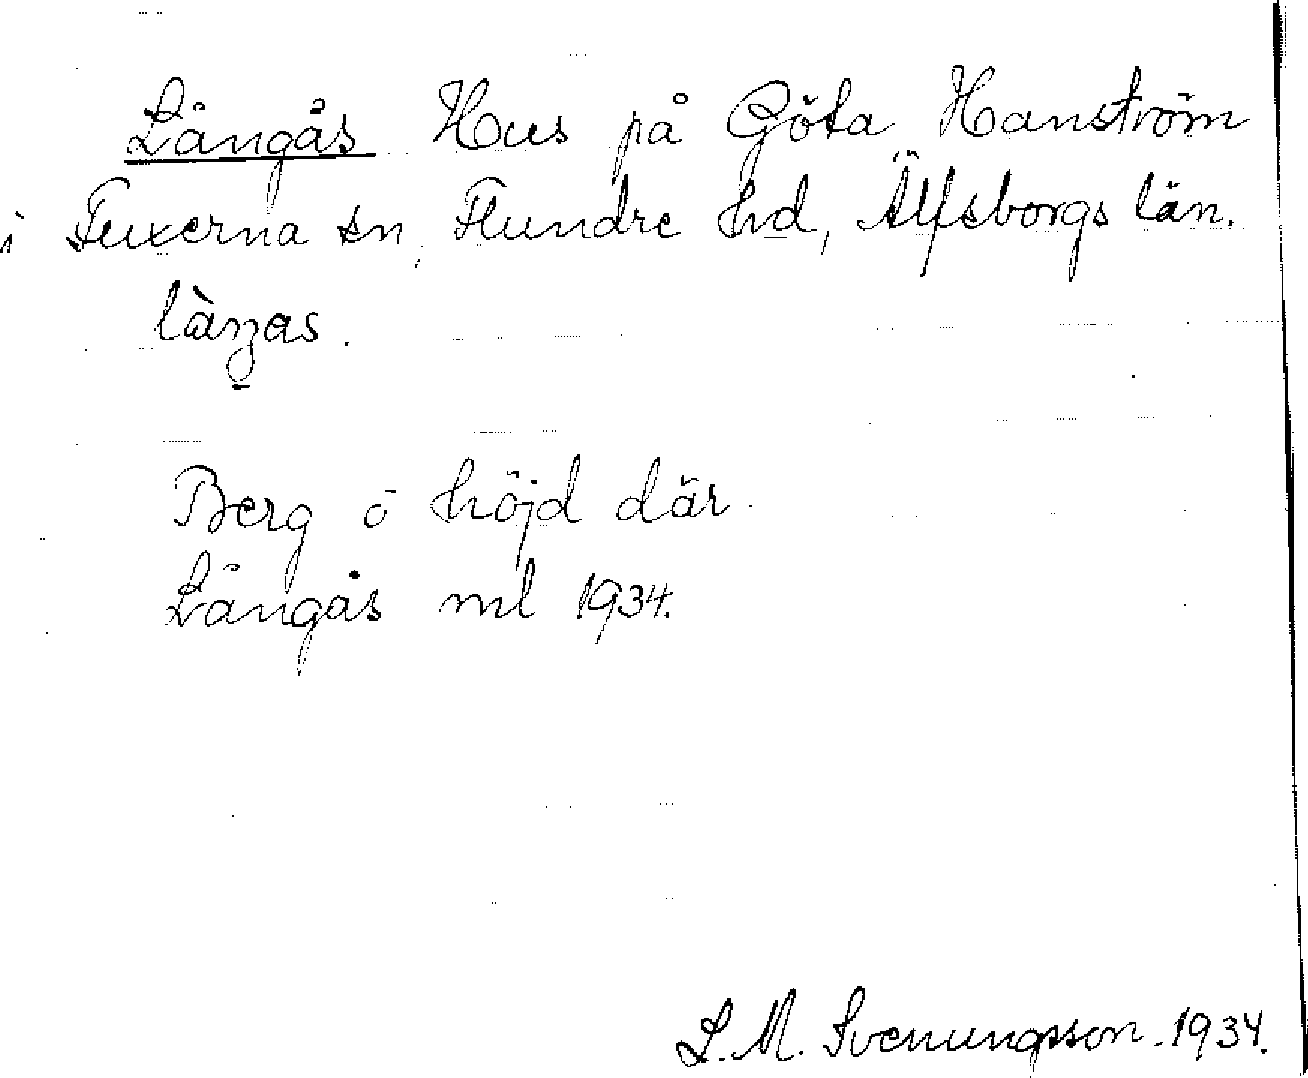 Långås Hus på Göta Hanström
i Fuxerna sn, Flundre hd, Älfsborgs län.
làŋas.
Berg o höjd där.
Långås ml 1934.
L. M. Svenungsson. 1934.